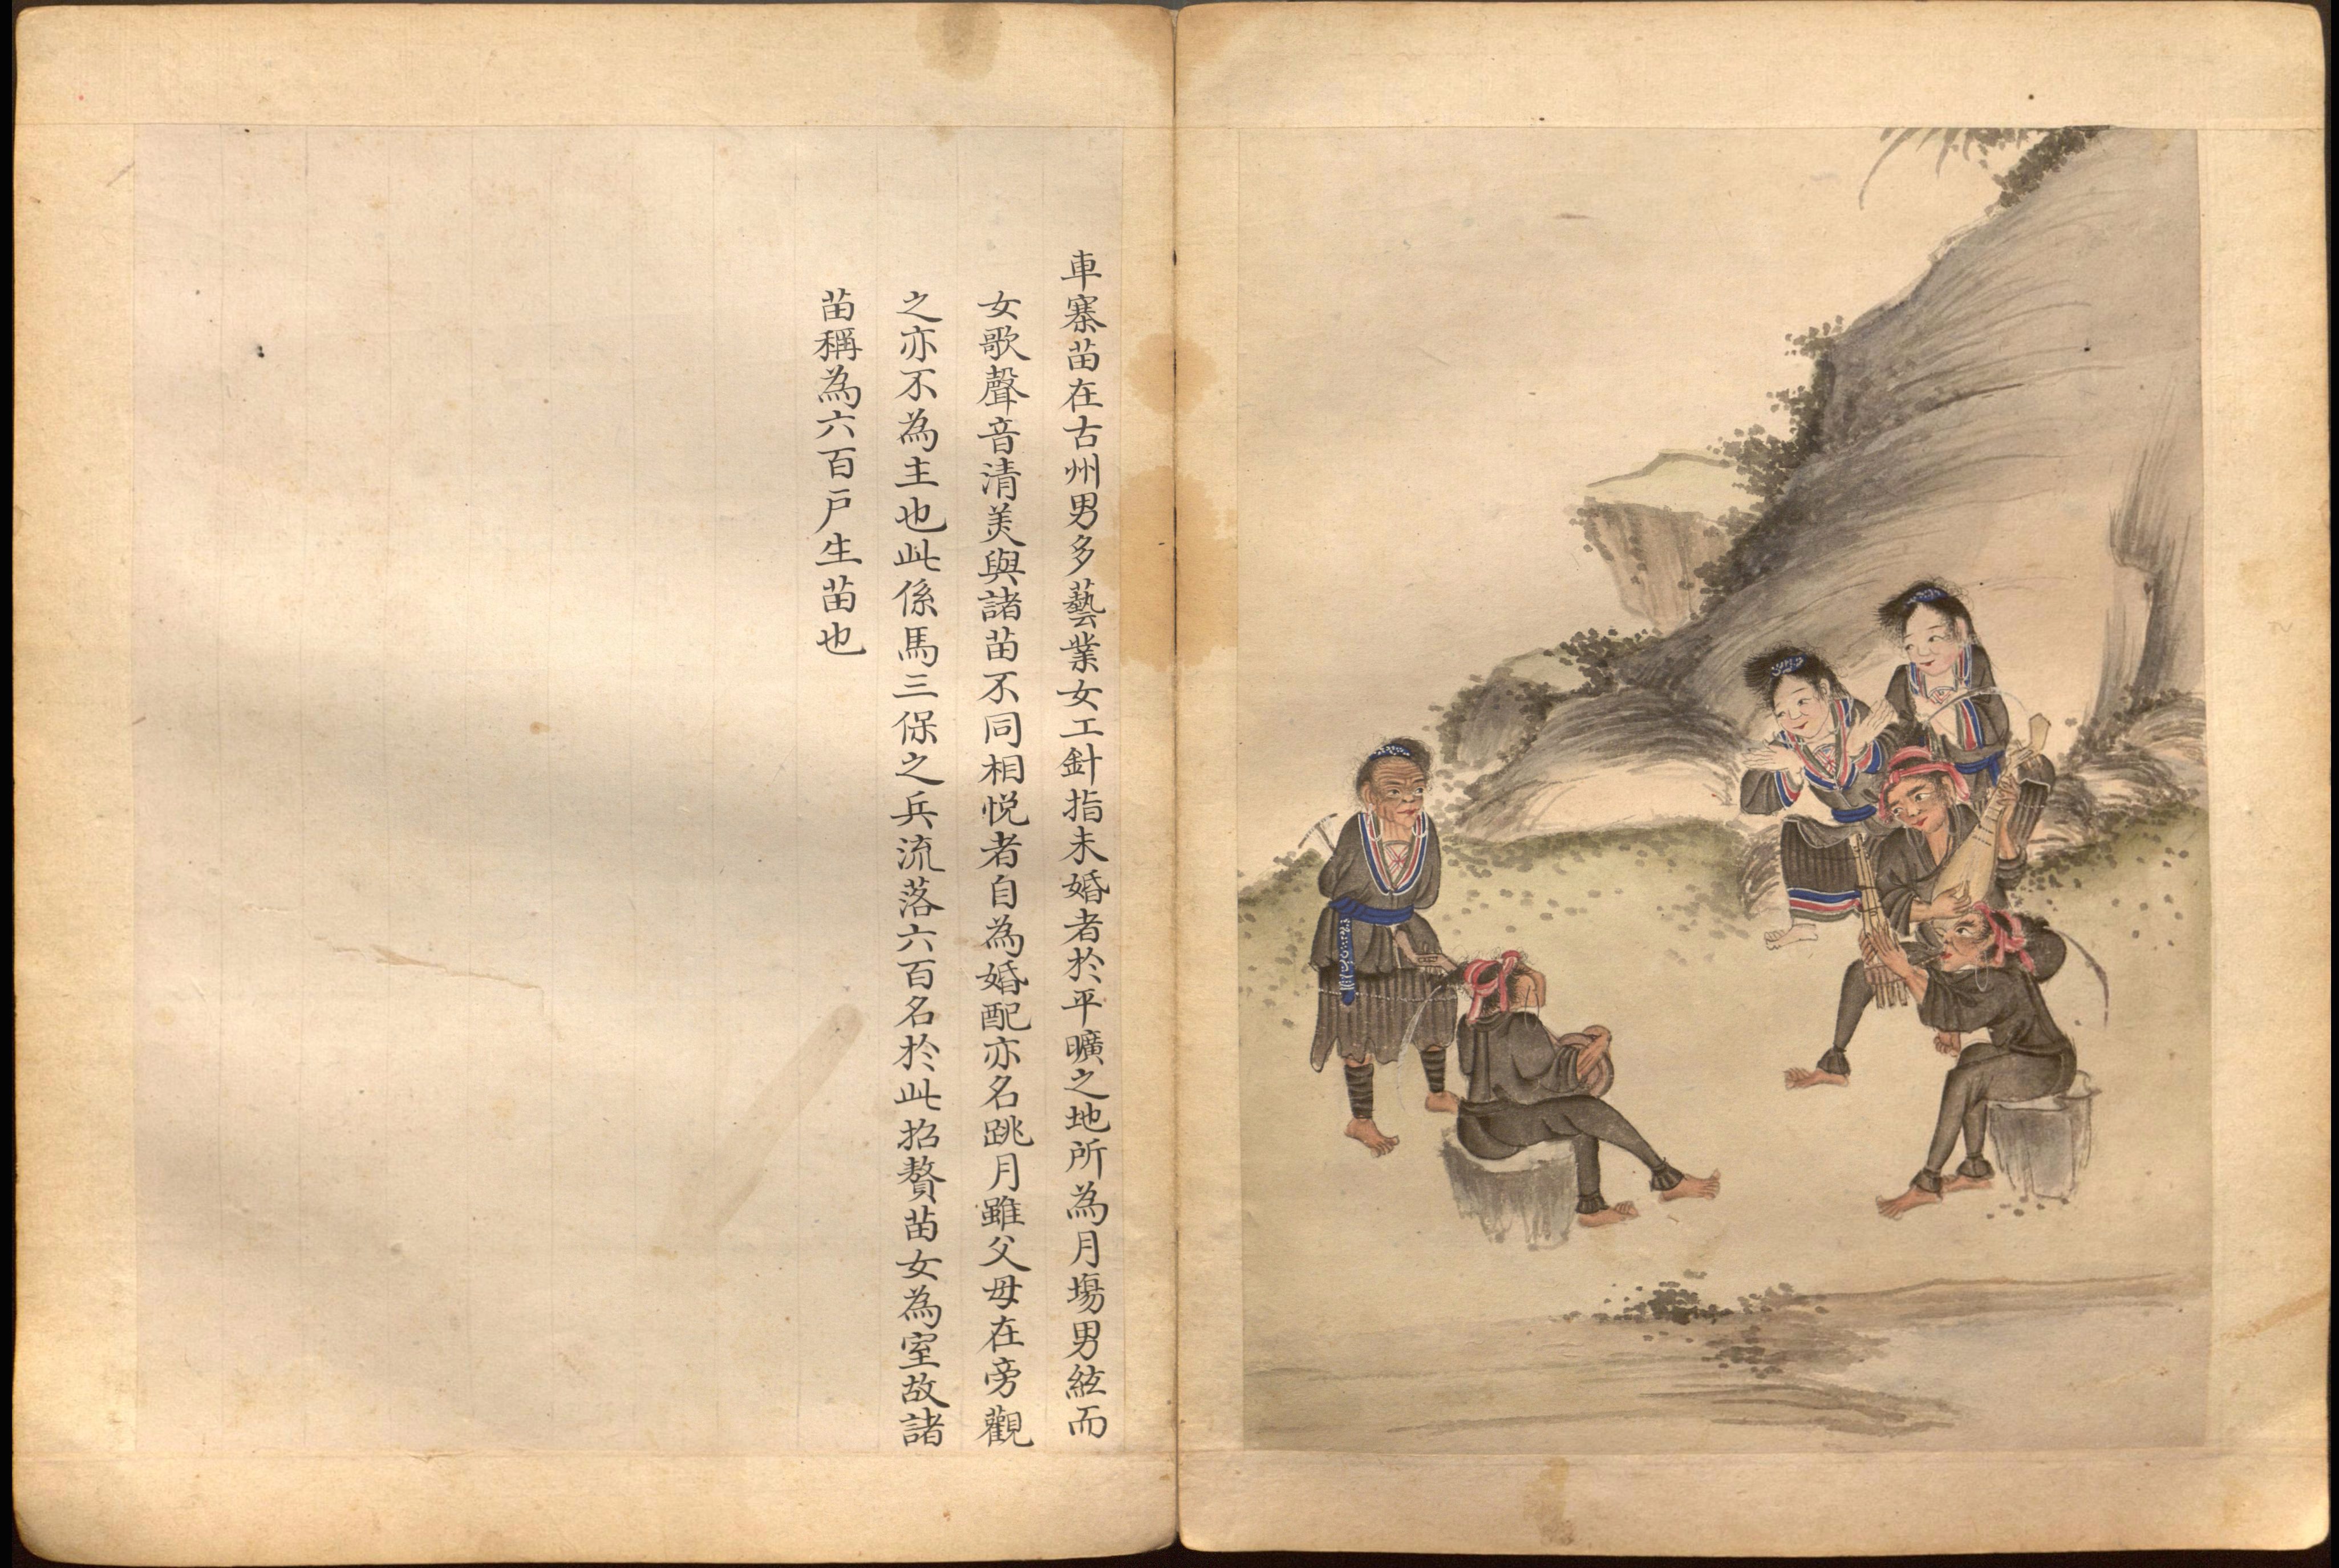 車寨苗在古州男多藝業女工針指未婚者於平曠之地所為月塲男絃而
女歌聲音清美與諸苗不同相悅者自為婚配亦名跳月雖父母在旁觀
之亦不為主也此係馬三保之兵流落六百名於此招贅苗女為室故諸
苗稱為六百戶生苗也